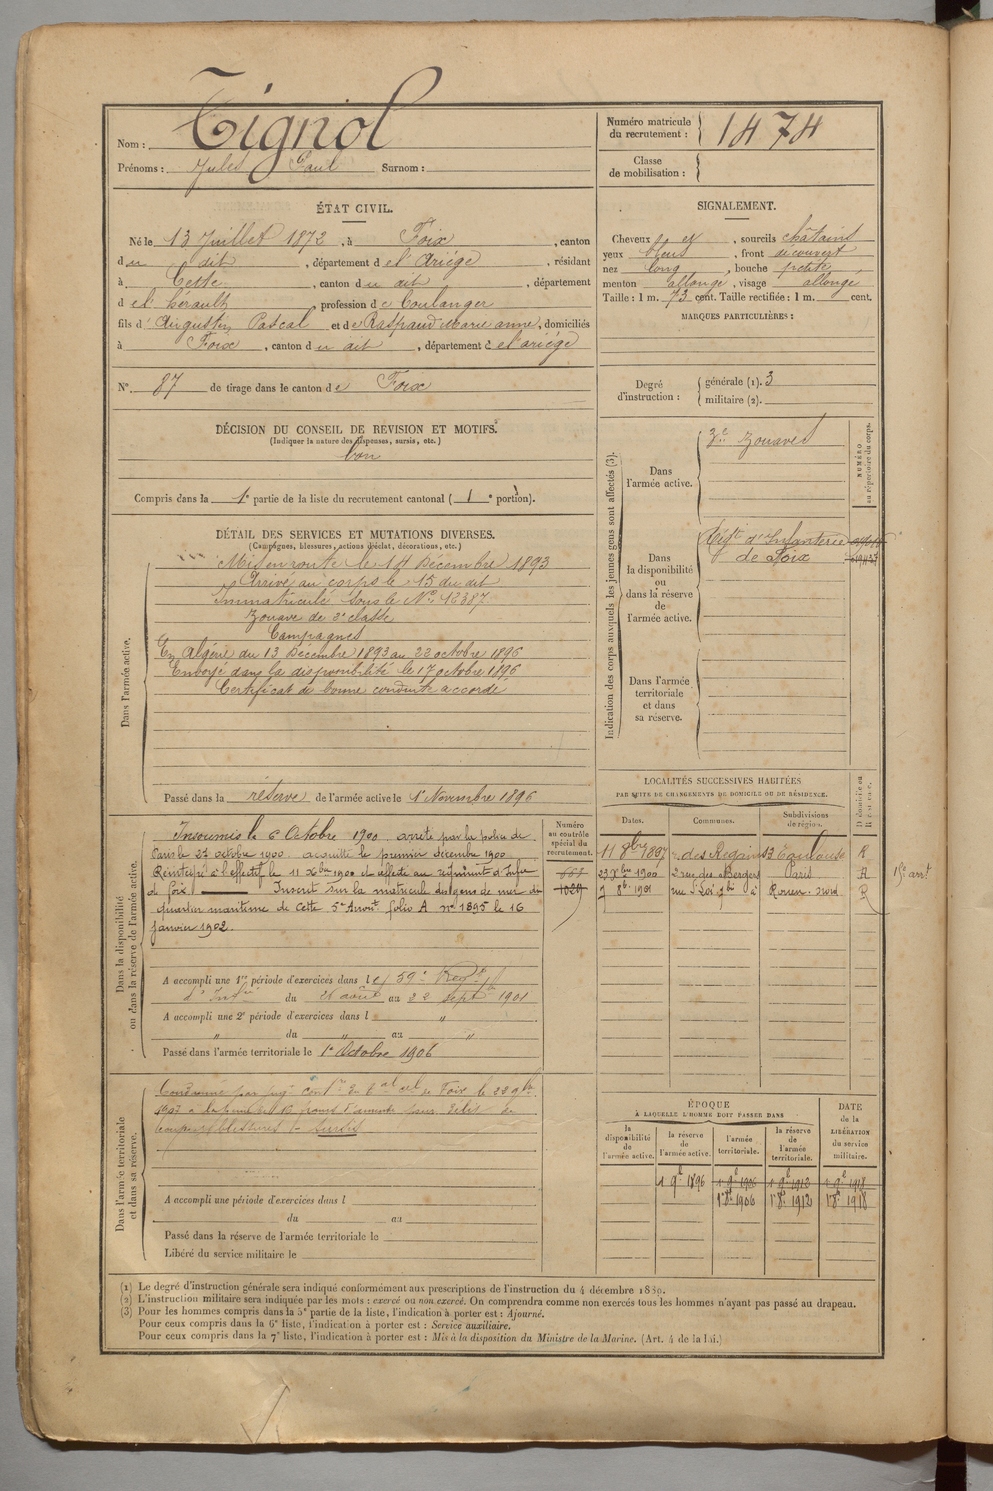 Nom : Tignol
Prénoms : Jules Paul Surnom :
Numéro matricule du recrutement : 1474
Classe de mobilisation :
ÉTAT CIVIL.
Né le 13 Juillet 1872, à Foix, canton
du dit, département de l'Ariège, résidant
à Cette, canton du dit, département
de l'hérault, profession de boulanger
fils d'Augustin Pascal et de Raspaud Marie anne, domiciliés
à Foix, canton du dit, département de l'ariège
N° 87 de tirage dans le canton de Foix
SIGNALEMENT.
Cheveux et, sourcils châtains
yeux bleus, front découvert
nez long, bouche petite
menton allongé, visage allongé
Taille : 1 m. 73 cent. Taille rectifiée : 1 m. cent.
MARQUES PARTICULIÈRES :
Degré d'instruction :
générale (1). 3
militaire (2).
DÉCISION DU CONSEIL DE REVISION ET MOTIFS.
(Indiquer la nature des dispenses, sursis, etc.)
bon
Compris dans la 1e partie de la liste du recrutement cantonal (1e portion).
DÉTAIL DES SERVICES ET MUTATIONS DIVERSES.
(Campagnes, blessures, actions d'éclat, décorations, etc.)
Dans l'armée active.
Mis en route le 14 Décembre 1893
Arrivé au corps le 15 du dit
Immatriculé sous le N° 12387
Zouave de 2e classe
Campagnes
En Algérie du 13 Décembre 1893 au 22 octobre 1896
Envoyé dans la disponibilité le 17 octobre 1896
Certificat de bonne conduite accordé
Passé dans la réserve de l'armée active le 1er Novembre 1896
Indication des corps auxquels les jeunes gens sont affectés (3).
NUMÉRO au répertoire du corps.
Dans l'armée active.
3e Zouaves
Dans la disponibilité ou dans la réserve de l'armée active.
Régt d'Infanterie
de Foix
Dans l'armée territoriale et dans sa réserve.
LOCALITÉS SUCCESSIVES HABITÉES
PAR SUITE DE CHANGEMENTS DE DOMICILE OU DE RÉSIDENCE.
Dates. Communes. Subdivisions de région. Domicile ou Résidence.
11 8bre 1897 des Regains 13 Toulouse R
23 Xbre 1900 2 rue des Bergers Paris R 15e arrt
7 8b. 1901 Rouen. nord R
Dans la disponibilité ou dans la réserve de l'armée active.
Numéro au contrôle spécial du recrutement.
1029
Insoumis le 6 Octobre 1900. arrêté par la police de
Paris le 27 octobre 1900. acquitté le premier décembre 1900
Réintégré à l'effectif le 11 Xbre 1900 et affecté au régiment d'Infie
de foix. Inscrit sur la matricule des gens de mer du
quartier maritime de Cette folio A n° 1895 le 16
janvier 1902.
A accompli une 1re période d'exercices dans le 59e Régt
d'Infie du 26 août au 22 septbre 1901
A accompli une 2e période d'exercices dans l "
" du " au "
Passé dans l'armée territoriale le 1er Octobre 1906
Dans l'armée territoriale et dans sa réserve.
Condamné par jugt du de Foix le 22 9bre
1907 à la peine de francs d'amende pour délit de
coups et blessures - sursis
A accompli une période d'exercices dans l
du au
Passé dans la réserve de l'armée territoriale le
Libéré du service militaire le
ÉPOQUE
À LAQUELLE L'HOMME DOIT PASSER DANS
la disponibilité de l'armée active. la réserve de l'armée active. l'armée territoriale. la réserve de l'armée territoriale.
DATE de la LIBÉRATION du service militaire.
1 9e 1896 1 9e 1906 1 9e 1912 1 9e 1918
1er 8e 1906 1er 8e 1912 1er 8e 1918
(1) Le degré d'instruction générale sera indiqué conformément aux prescriptions de l'instruction du 4 décembre 1889.
(2) L'instruction militaire sera indiquée par les mots : exercé ou non exercé. On comprendra comme non exercés tous les hommes n'ayant pas passé au drapeau.
(3) Pour les hommes compris dans la 5e partie de la liste, l'indication à porter est : Ajourné.
Pour ceux compris dans la 6e liste, l'indication à porter est : Service auxiliaire.
Pour ceux compris dans la 7e liste, l'indication à porter est : Mis à la disposition du Ministre de la Marine. (Art. 4 de la loi.)